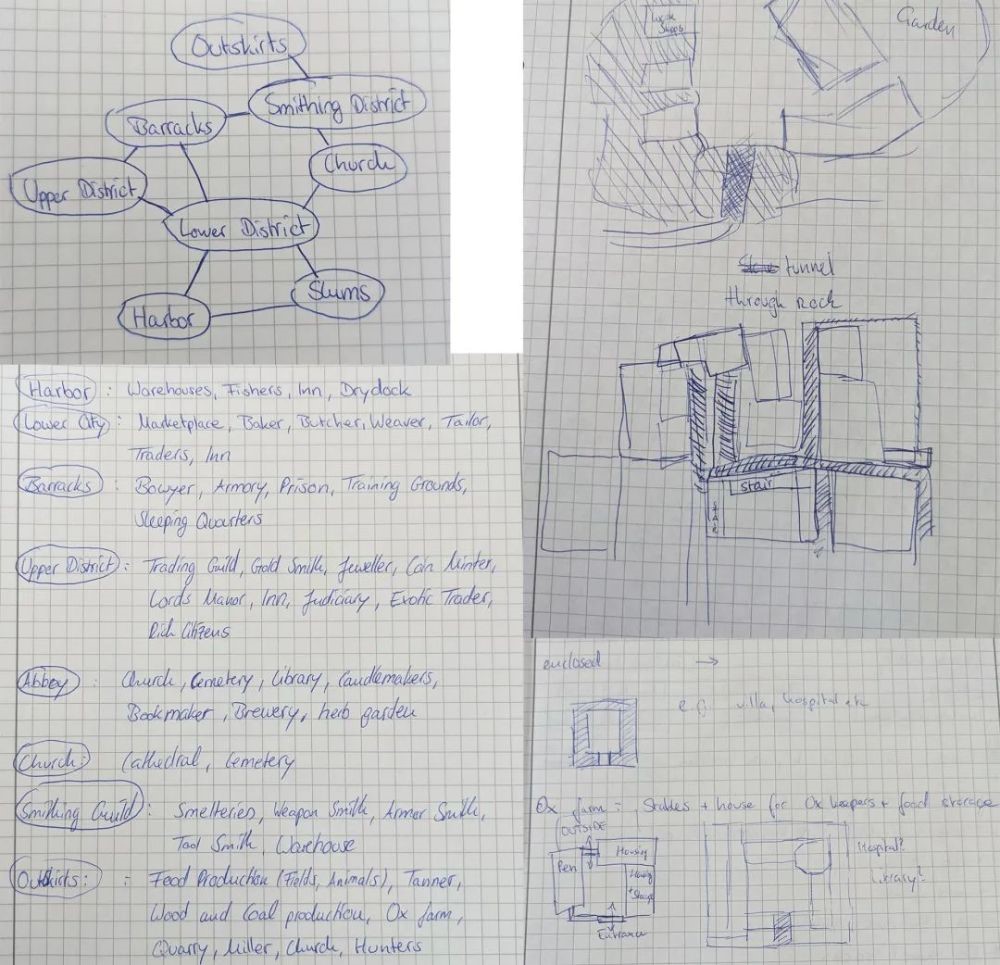 Outskirts
Smithing District
Barracks
Church
Upper District
Lower District
Slums
Harbor
Harbor : Warehouses, Fishers, Inn, Drydock
Lower City : Marketplace, Baker, Butcher, Weaver, Tailor,
Traders, Inn
Barracks : Bowyer, Armory, Prison, Training Grounds,
Sleeping Quarters
Upper District : Trading Guild, Gold Smith, Jeweller, Coin Minter,
Lords Manor, Inn, Judiciary, Exotic Trader,
Rich Citizens
Abbey : Church, Cemetery, Library, Candlemakers,
Bookmaker, Brewery, herb garden
Church : Cathedral, Cemetery
Smithing Guild : Smelteries, Weapon Smith, Armer Smith,
Tool Smith, Warehouse
Outskirts : : Food Production (Fields, Animals), Tanner,
Wood and Coal production, Ox farm,
Quarry, Miller, Church, Hunters
Shops
Garden
tunnel
through Rock
stair
STAIR
enclosed →
e.g. villa, hospital etc
Ox farm = Stables + house for Ox keepers + food storage
OUTSIDE
Pen
Housing
Housing
+ Storage
Entrance
Hospital?
Library?